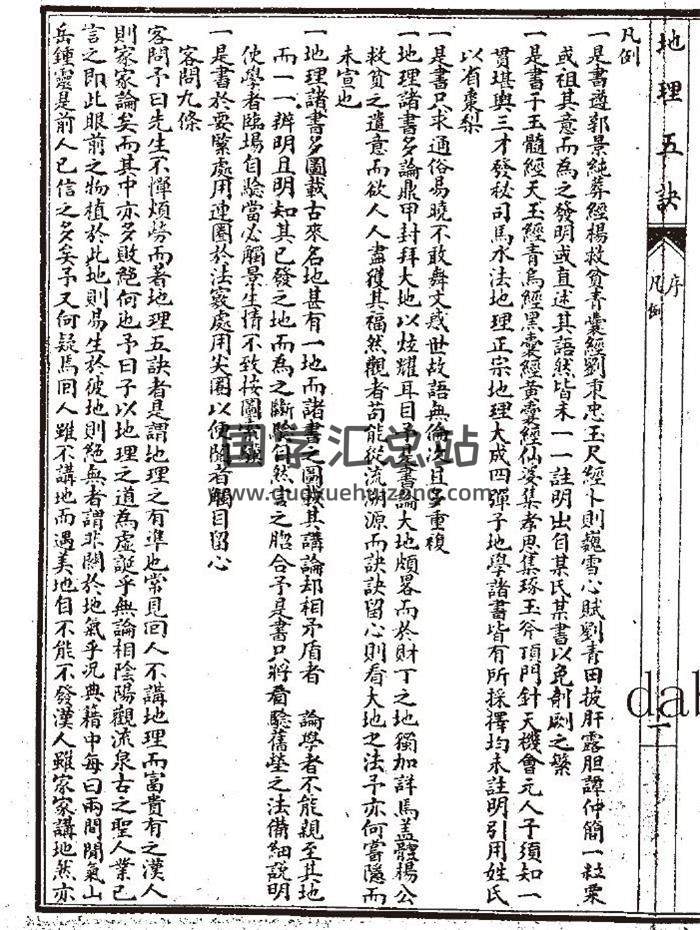 地理五訣
序
凡例
一
凡例
一是書遵郭景純葬經楊救貧青囊經劉秉忠玉尺經卜則巍雪心賦劉青田披肝露胆譚仲簡一粒粟
或祖其意而為之發明或直述其語然皆未一一註明出自某氏某書以免剞劂之繁
一是書于玉髓經天玉經青烏經黑囊經黃囊經仙婆集孝思集琢玉斧頂門針天機會元人子須知一
貫堪輿三才發秘司馬水法地理正宗地理大成四彈子地學諸書皆有所採擇均未註明引用姓氏
以省棗梨
一是書只求通俗易曉不敢舞文惑世故語無倫次且多重複
一地理諸書多論鼎甲封拜大地以炫耀耳目予是書論大地頗畧而於財丁之地獨加詳焉盖體楊公
救貧之遺意而欲人人盡獲其福然觀者苟能從流溯源而訣訣留心則看大地之法予亦何嘗隱而
未宣也
一地理諸書多圖載古來名地甚有一地而諸書之圖載其講論却相矛盾者 論學者不能親至其地
而一一辨明且明知其已發之地而為之斷驗自然言之脗合予是書只將看驗舊塋之法備細說明
使學者臨場自驗當必觸景生情不致按圖
一是書於要緊處用連圈於法竅處用尖圈以便閱者觸目留心
客問九條
客問予曰先生不憚煩勞而著地理五訣者是謂地理之有準也常見回人不講地理而富貴有之漢人
則家家論矣而其中亦多敗絕何也予曰子以地理之道為虛誕乎無論相陰陽觀流泉古之聖人業已
言之即此眼前之物植於此地則易生於彼地則絕無者謂非關於地氣乎況典籍中每曰兩間閒氣山
岳鍾靈是前人已信之多矣予又何疑焉回人雖不講地而遇美地自不能不發漢人雖家家講地然亦
国学汇总站
www.guoxuehuizong.com
dal